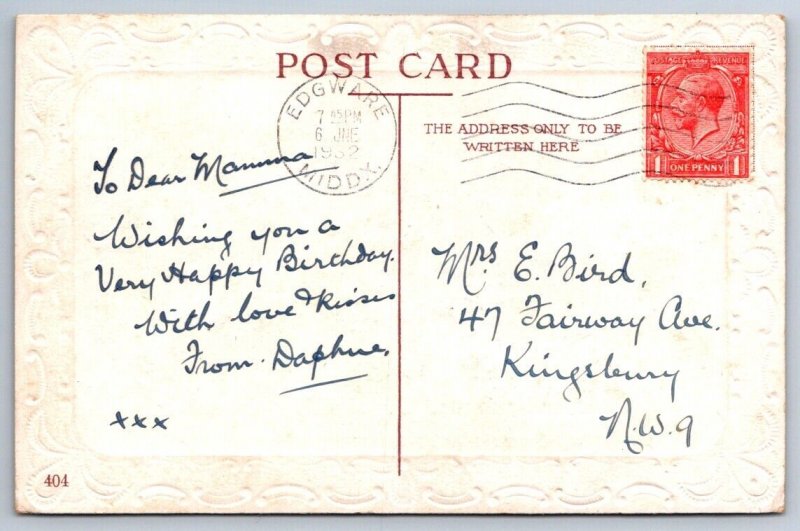 POST CARD
EDGWARE
7 45 PM
6 JNE
1932
MIDDX.
POSTAGE REVENUE
1 ONE PENNY 1
THE ADDRESS ONLY TO BE
WRITTEN HERE
To Dear Mamma
Wishing you a
Very Happy Birthday.
With love & kisses
From Daphne.
xxx
Mrs E. Bird,
47 Fairway Ave.
Kingsbury
N.W.9
404